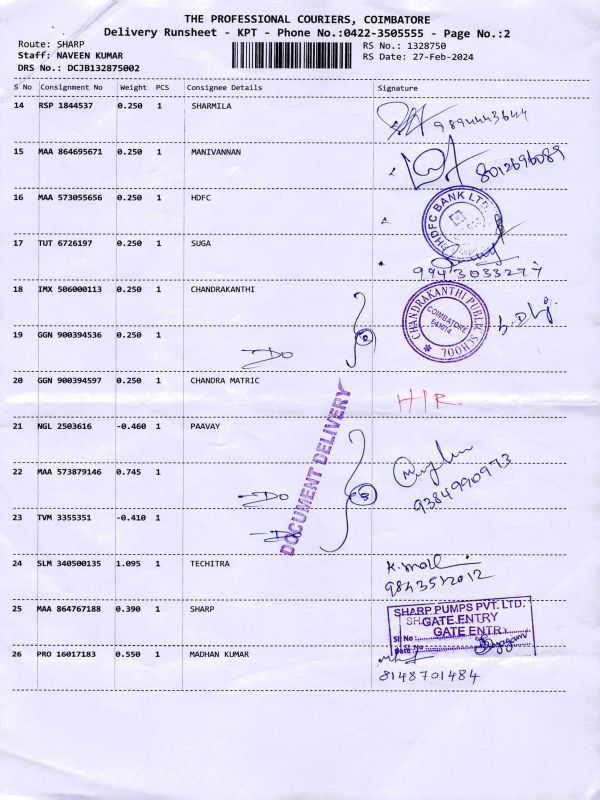 THE PROFESSIONAL COURIERS, COIMBATORE
Delivery Runsheet - KPT - Phone No.:0422-3505555 - Page No.:2
Route: SHARP
Staff: NAVEEN KUMAR
DRS No.: DCJB132875002
RS No.: 1328750
RS Date: 27-Feb-2024
S No Consignment No Weight PCS Consignee Details Signature
14 RSP 1844537 0.250 1 SHARMILA
9894443644
15 MAA 864695671 0.250 1 MANIVANNAN
8012696089
16 MAA 573055656 0.250 1 HDFC
HDFC BANK LTD
17 TUT 6726197 0.250 1 SUGA
9943033277
18 IMX 506000113 0.250 1 CHANDRAKANTHI
CHANDRAKANTHI PUBLIC SCHOOL
COIMBATORE
641014
19 GGN 900394536 0.250 1
Do
2
20 GGN 900394597 0.250 1 CHANDRA MATRIC
H/R.
DOCUMENT DELIVERY
21 NGL 2503616 -0.460 1 PAAVAY
9384990973
22 MAA 573879146 0.745 1
Do
3
23 TVM 3355351 -0.410 1
Do
24 SLM 340500135 1.095 1 TECHITRA
9843512012
25 MAA 864767188 0.390 1 SHARP
SHARP PUMPS PVT. LTD.
GATE ENTRY
GATE ENTRY
Sl No :
Date :
26 PRO 16017183 0.550 1 MADHAN KUMAR
8148701484